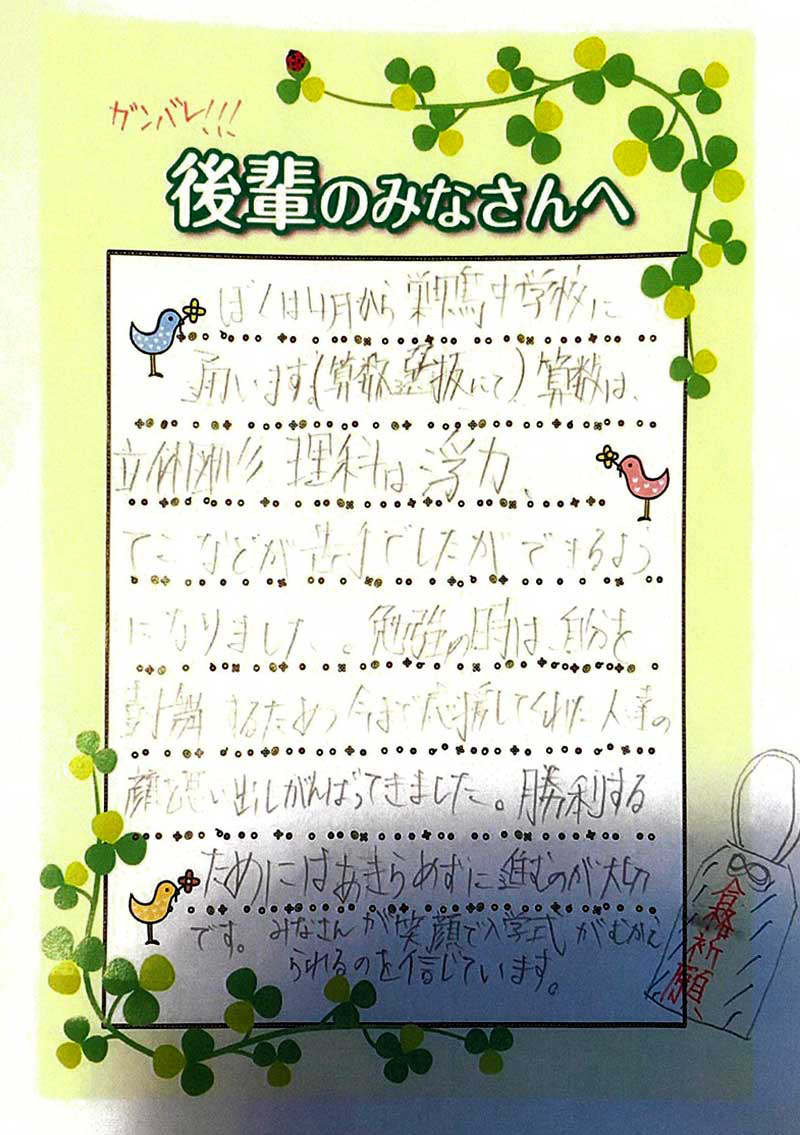 ガンバレ!!!
後輩のみなさんへ
ぼくは4月から巣鴨中学校に
通います。(算数選抜にて)算数は、
立体図形 理科は浮力、
てこなどが苦手でしたができるよう
になりました。勉強の時は、自分を
鼓舞するため今まで応援してくれた人達の
顔を思い出しがんばってきました。勝利する
ためにはあきらめずに進むのが大切
です。みなさんが笑顔で入学式がむかえ
られるのを信じています。
合格祈願、